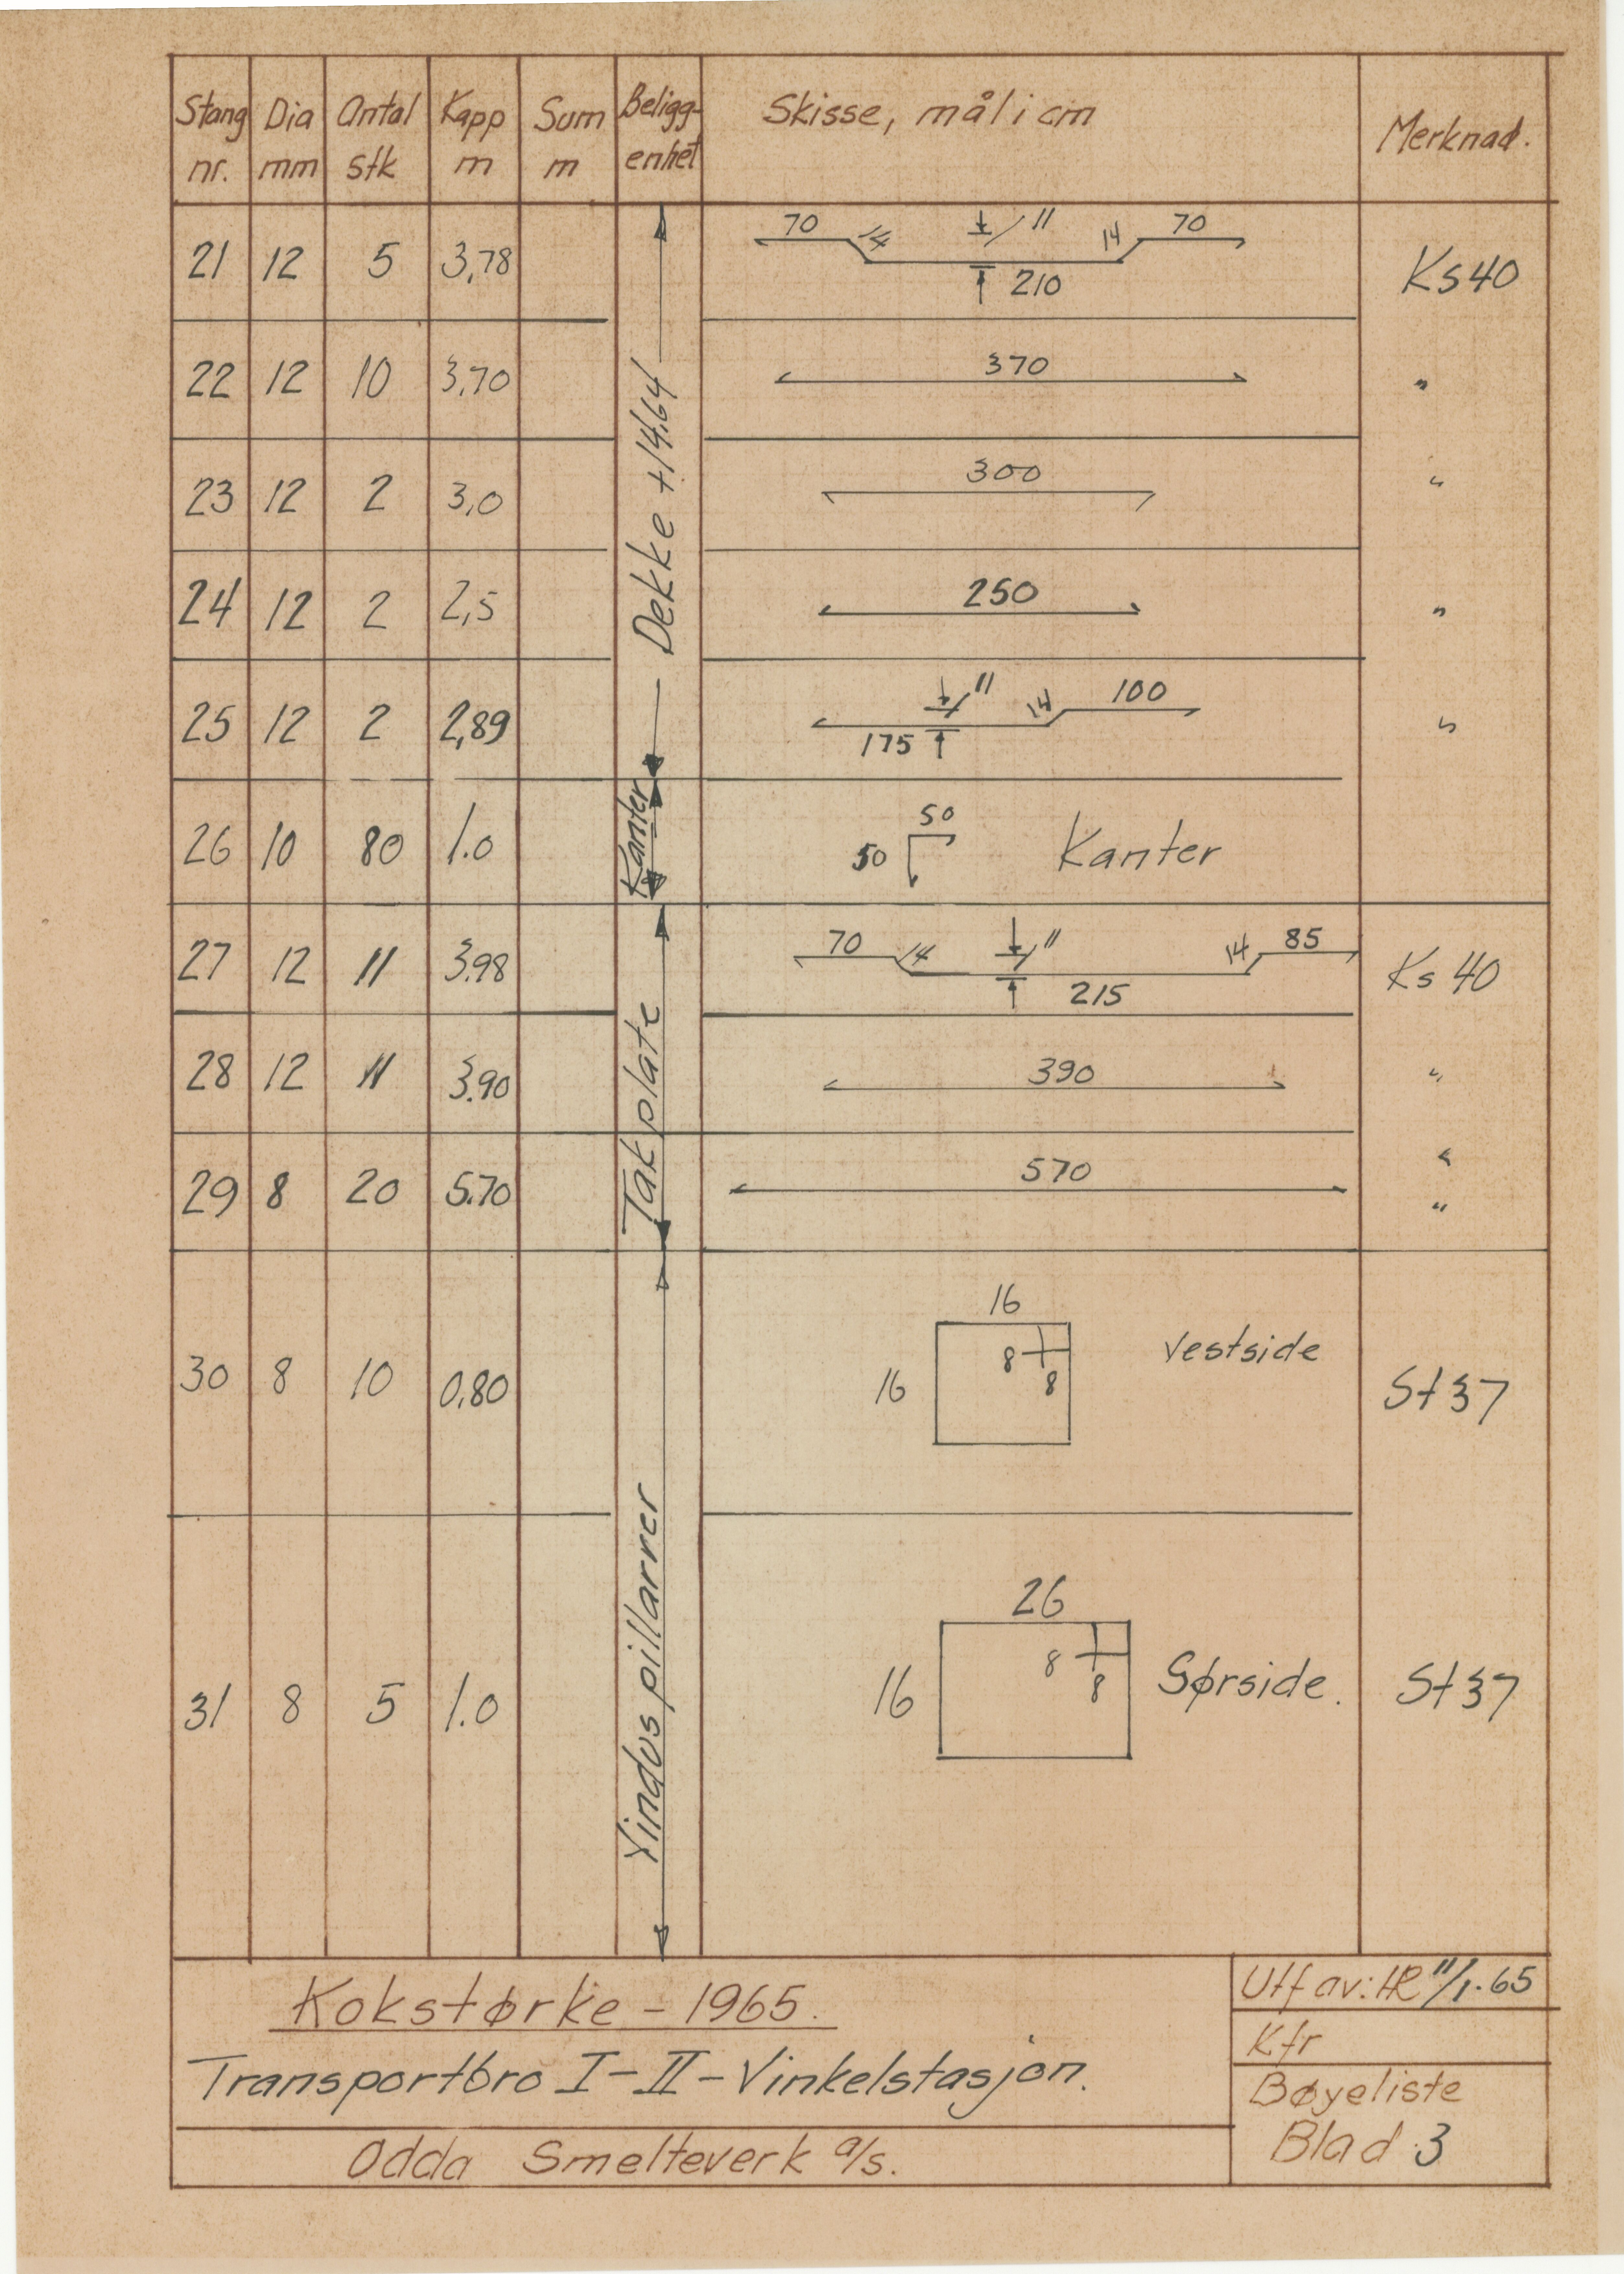 Stang Dia Antal Kapp Sum Beligg- Skisse, mål i cm Merknad.
nr. mm stk m m enhet
70 14 11 14 70
21 12 5 3,78 210 Ks 40
22 12 10 3,70 370 "
23 12 2 3,0 300 "
Dekke +14,64
24 12 2 2,5 250 "
11 14 100
25 12 2 2,89 175 "
Kanter
50
26 10 80 1.0 50 Kanter
70 14 11 14 85
27 12 11 3.98 215 Ks 40
28 12 11 3.90 390 "
Takplate "
29 8 20 5.70 570 "
16
8 Vestside
30 8 10 0,80 16 8 St 37
Vindus pillarrer
26
8
31 8 5 1.0 16 8 Sørside. St 37
Kokstørke - 1965.
Transportbro I-II-Vinkelstasjon.
Odda Smelteverk a/s.
Utf av: HR 11/1.65
Kfr
Bøyeliste
Blad 3